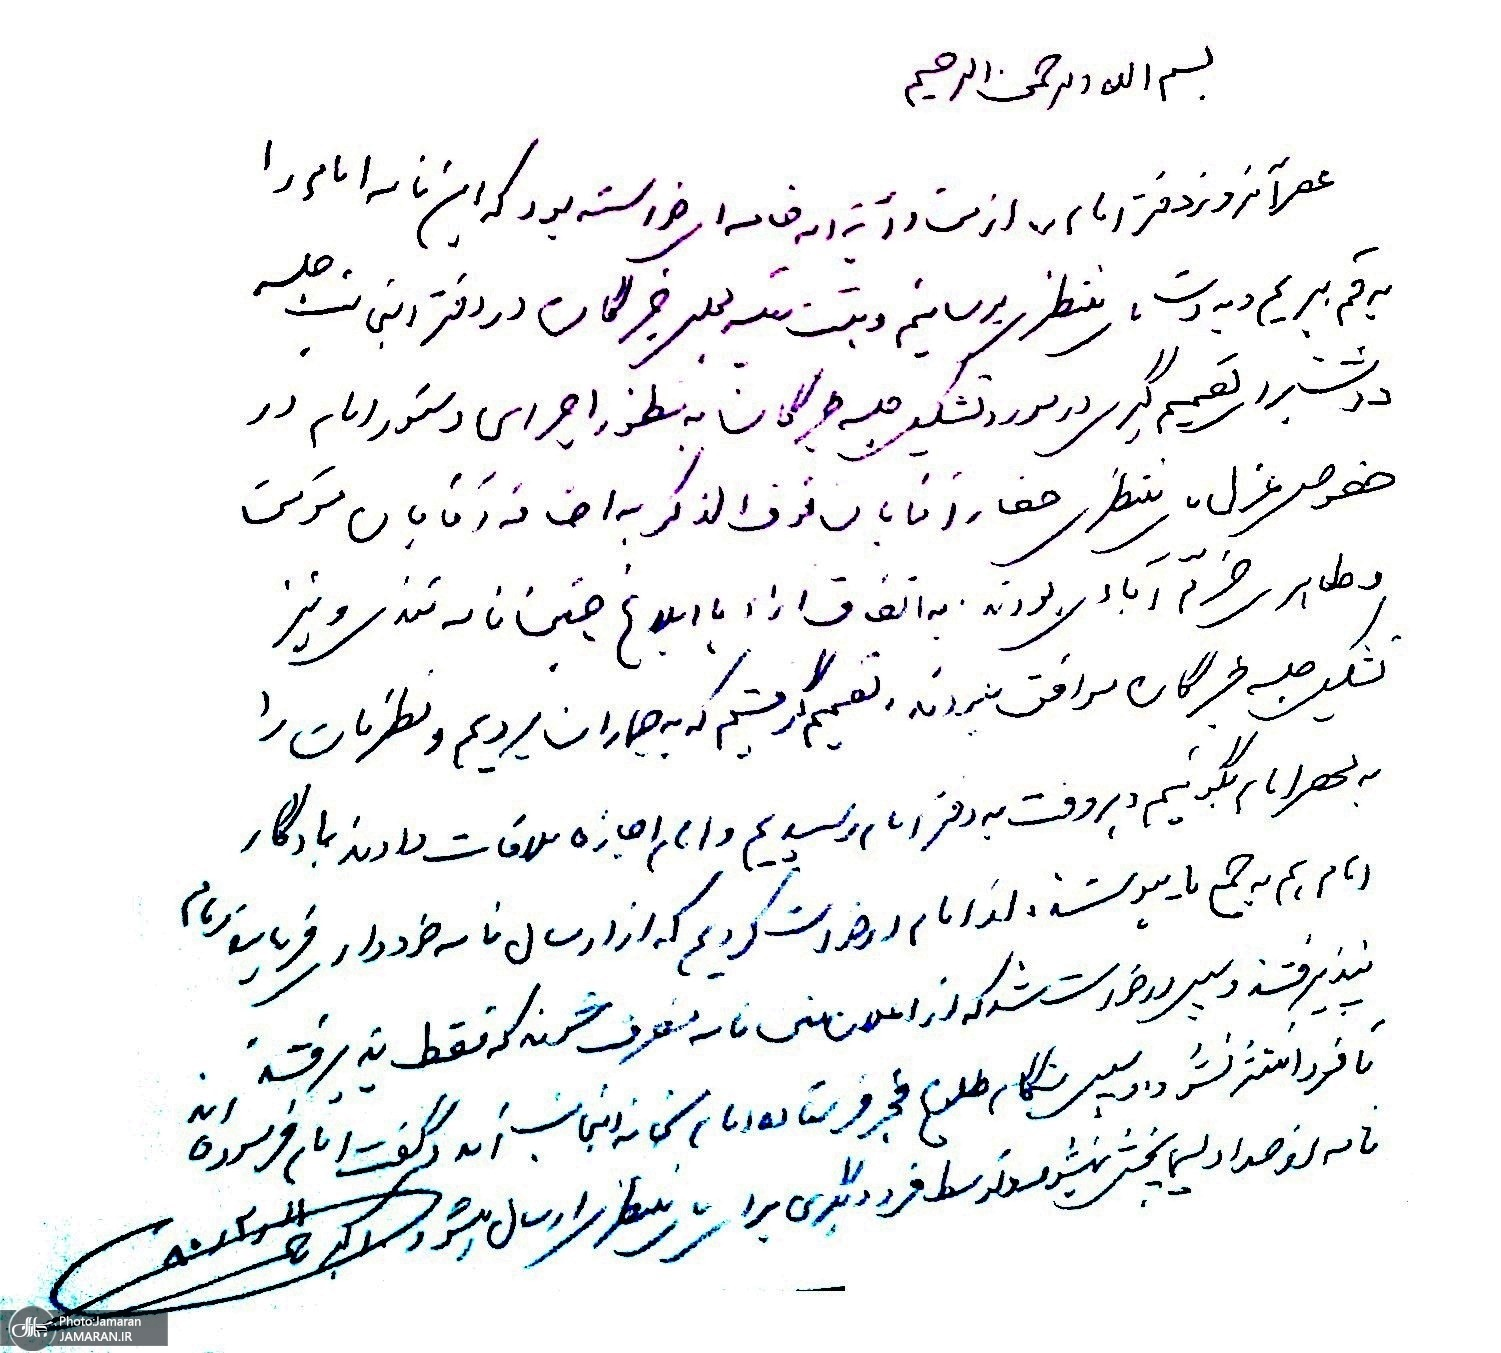 بسم الله الرحمن الرحیم
عصر آنروز دفتر امام، از من و آیة الله خامنه‌ای خواسته بود که این نامه امام را
به قم ببریم و به دست آ. منتظری برسانیم و هیئت رئیسه مجلس خبرگان در دفتر اینجانب جلسه
داشت برای تصمیم گیری در مورد تشکیل جلسه خبرگان به منظور اجرای دستور امام در
خصوص عزل آ. منتظری حضار آقایان فوق الذکر به اضافه آقایان
و طاهری خرّم آبادی بودند. به اتفاق آراء با ابلاغ چنین نامه تندی و نیز
تشکیل جلسه خبرگان موافق نبودند، تصمیم گرفتیم که به جماران برویم و نظرمان را
به محضر امام بگوئیم دیروقت به دفتر امام رسیدیم و امام اجازه ملاقات دادند یادگار
امام هم به جمع ما پیوستند. از امام درخواست کردیم که از ارسال نامه خودداری فرمایند امام
نپذیرفتند و سپس درخواست شد که از اعلان متن نامه منصرف شوند که فقط پذیرفتند
تا فردا منتشر نشود و سپس هنگام طلوع فجر فرستاده امام بخانه اینجانب آمد و گفت امام فرموده‌اند
نامه از صدا و سیما پخش نمیشود و توسط فرد دیگری برای آ. منتظری ارسال میشود. اکبر
Photo:Jamaran
JAMARAN.IR